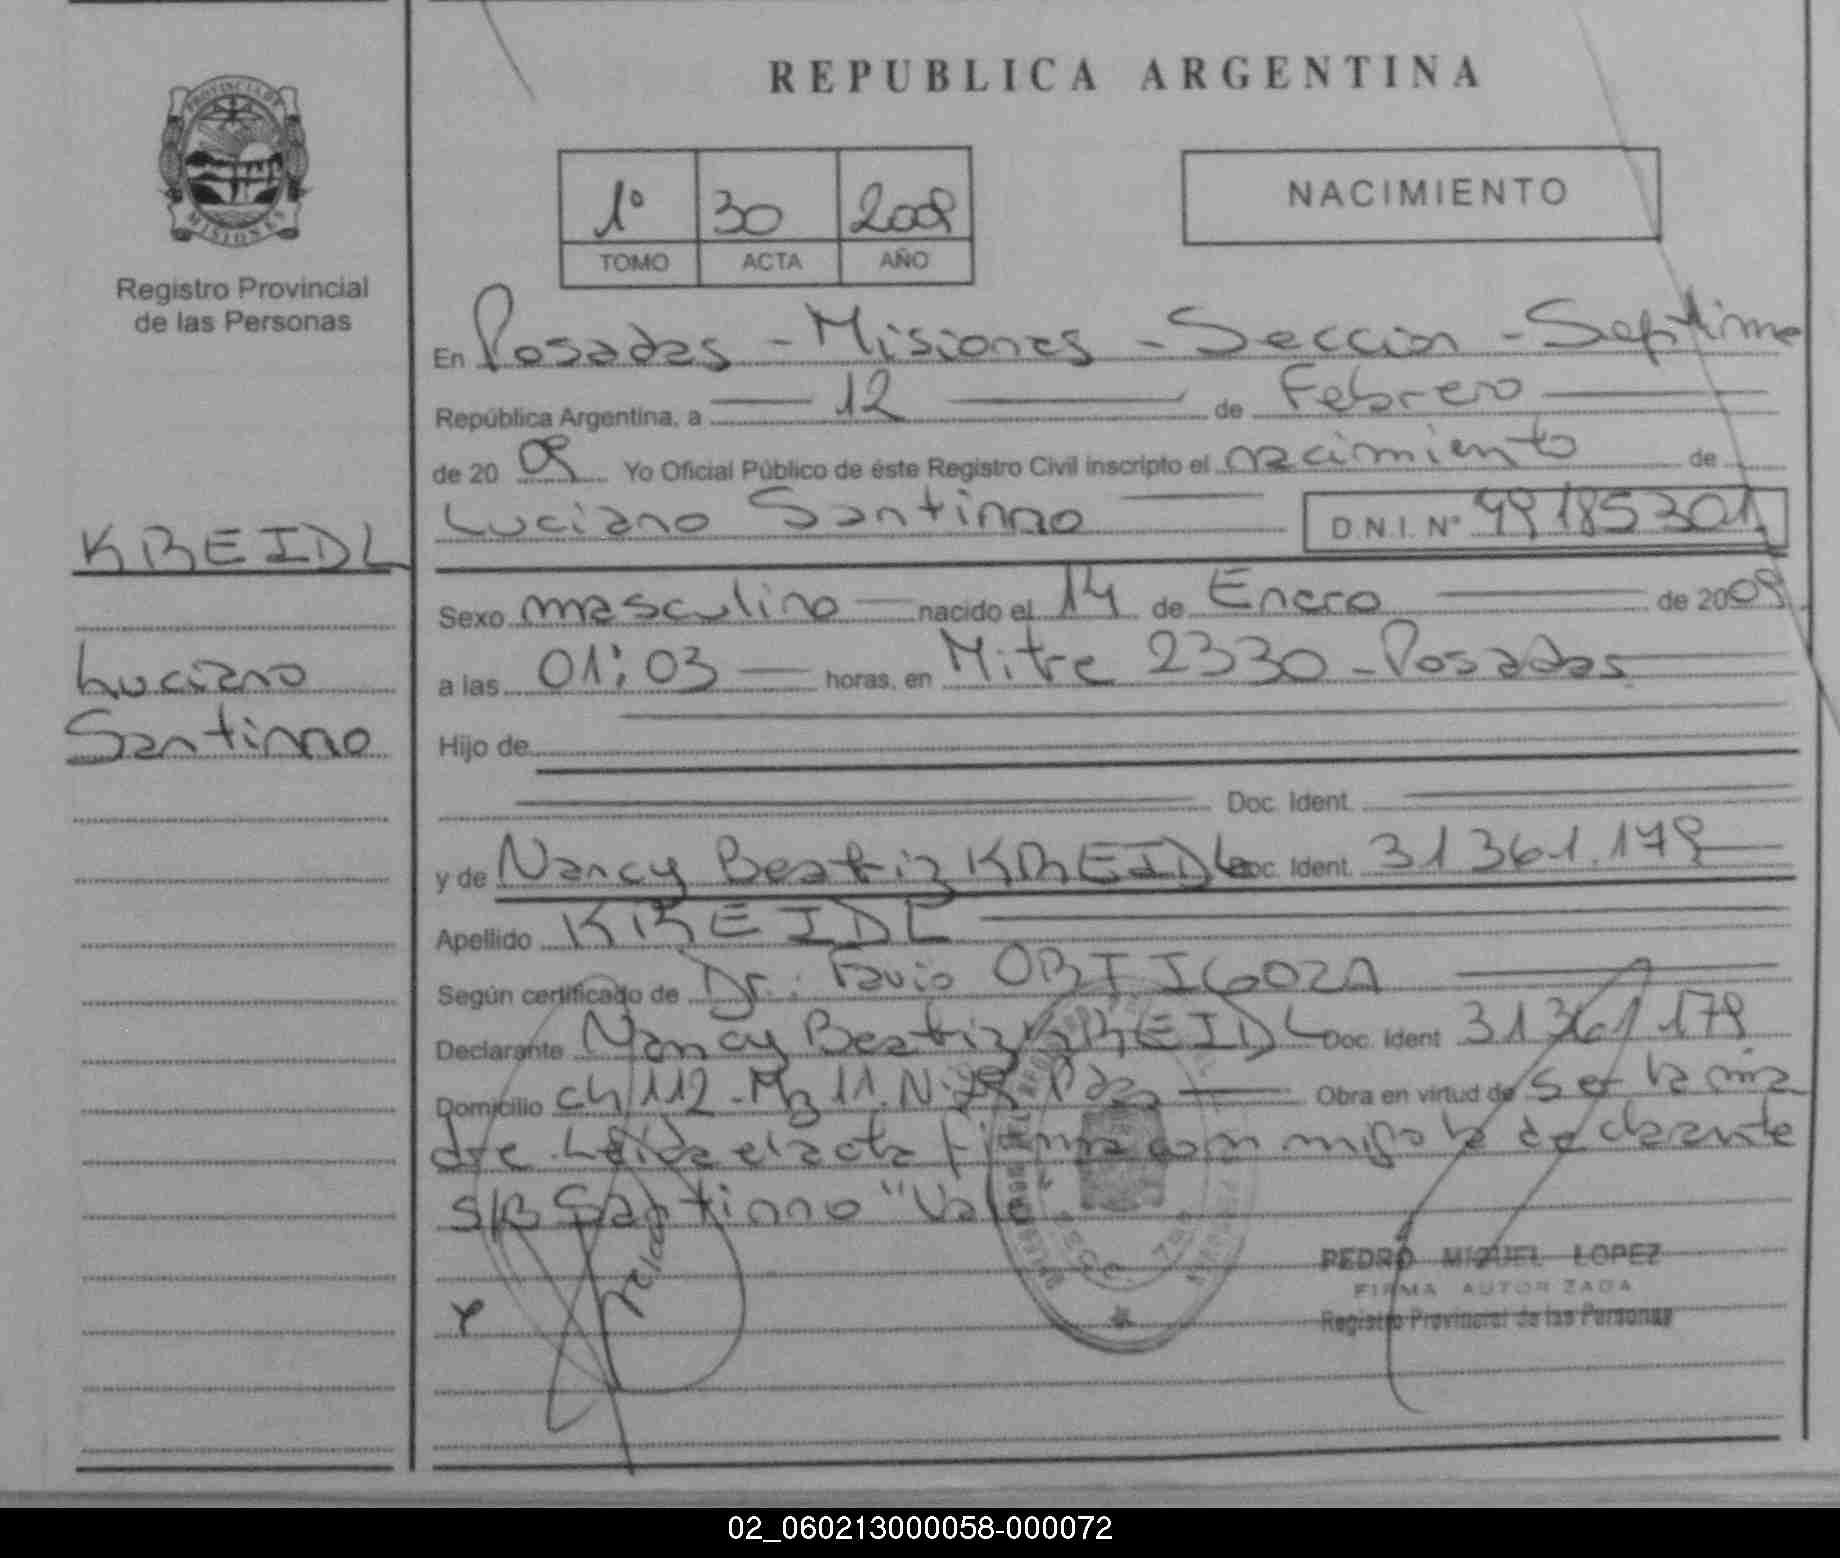 REPUBLICA ARGENTINA
PROVINCIA DE
MISIONES
Registro Provincial
de las Personas
1º 30 2009
TOMO ACTA AÑO
NACIMIENTO
En Posadas - Misiones - Seccion - Septima
República Argentina, a 12 de Febrero
de 20 09 Yo Oficial Público de éste Registro Civil inscripto el nacimiento de
Luciano Santinno D.N.I. Nº 49185301
KREIDL
Luciano
Santinno
Sexo masculino nacido el 14 de Enero de 2009
a las 01:03 horas, en Mitre 2330 - Posadas
Hijo de
Doc. Ident.
y de Nancy Beatriz KREIDL Doc. Ident. 31361.179
Apellido KREIDL
Según certificado de Dr. Favio ORTIGOZA
Declarante Nancy Beatriz KREIDL Doc. Ident 31361179
Domicilio ch 112 - Mz 11. Obra en virtud de ser la ma
dre. Leida el acta firma conmigo la declarante
S/R Santinno "Vale
PEDRO MIGUEL LOPEZ
FIRMA AUTORIZADA
Registro Provincial de las Personas
02_060213000058-000072